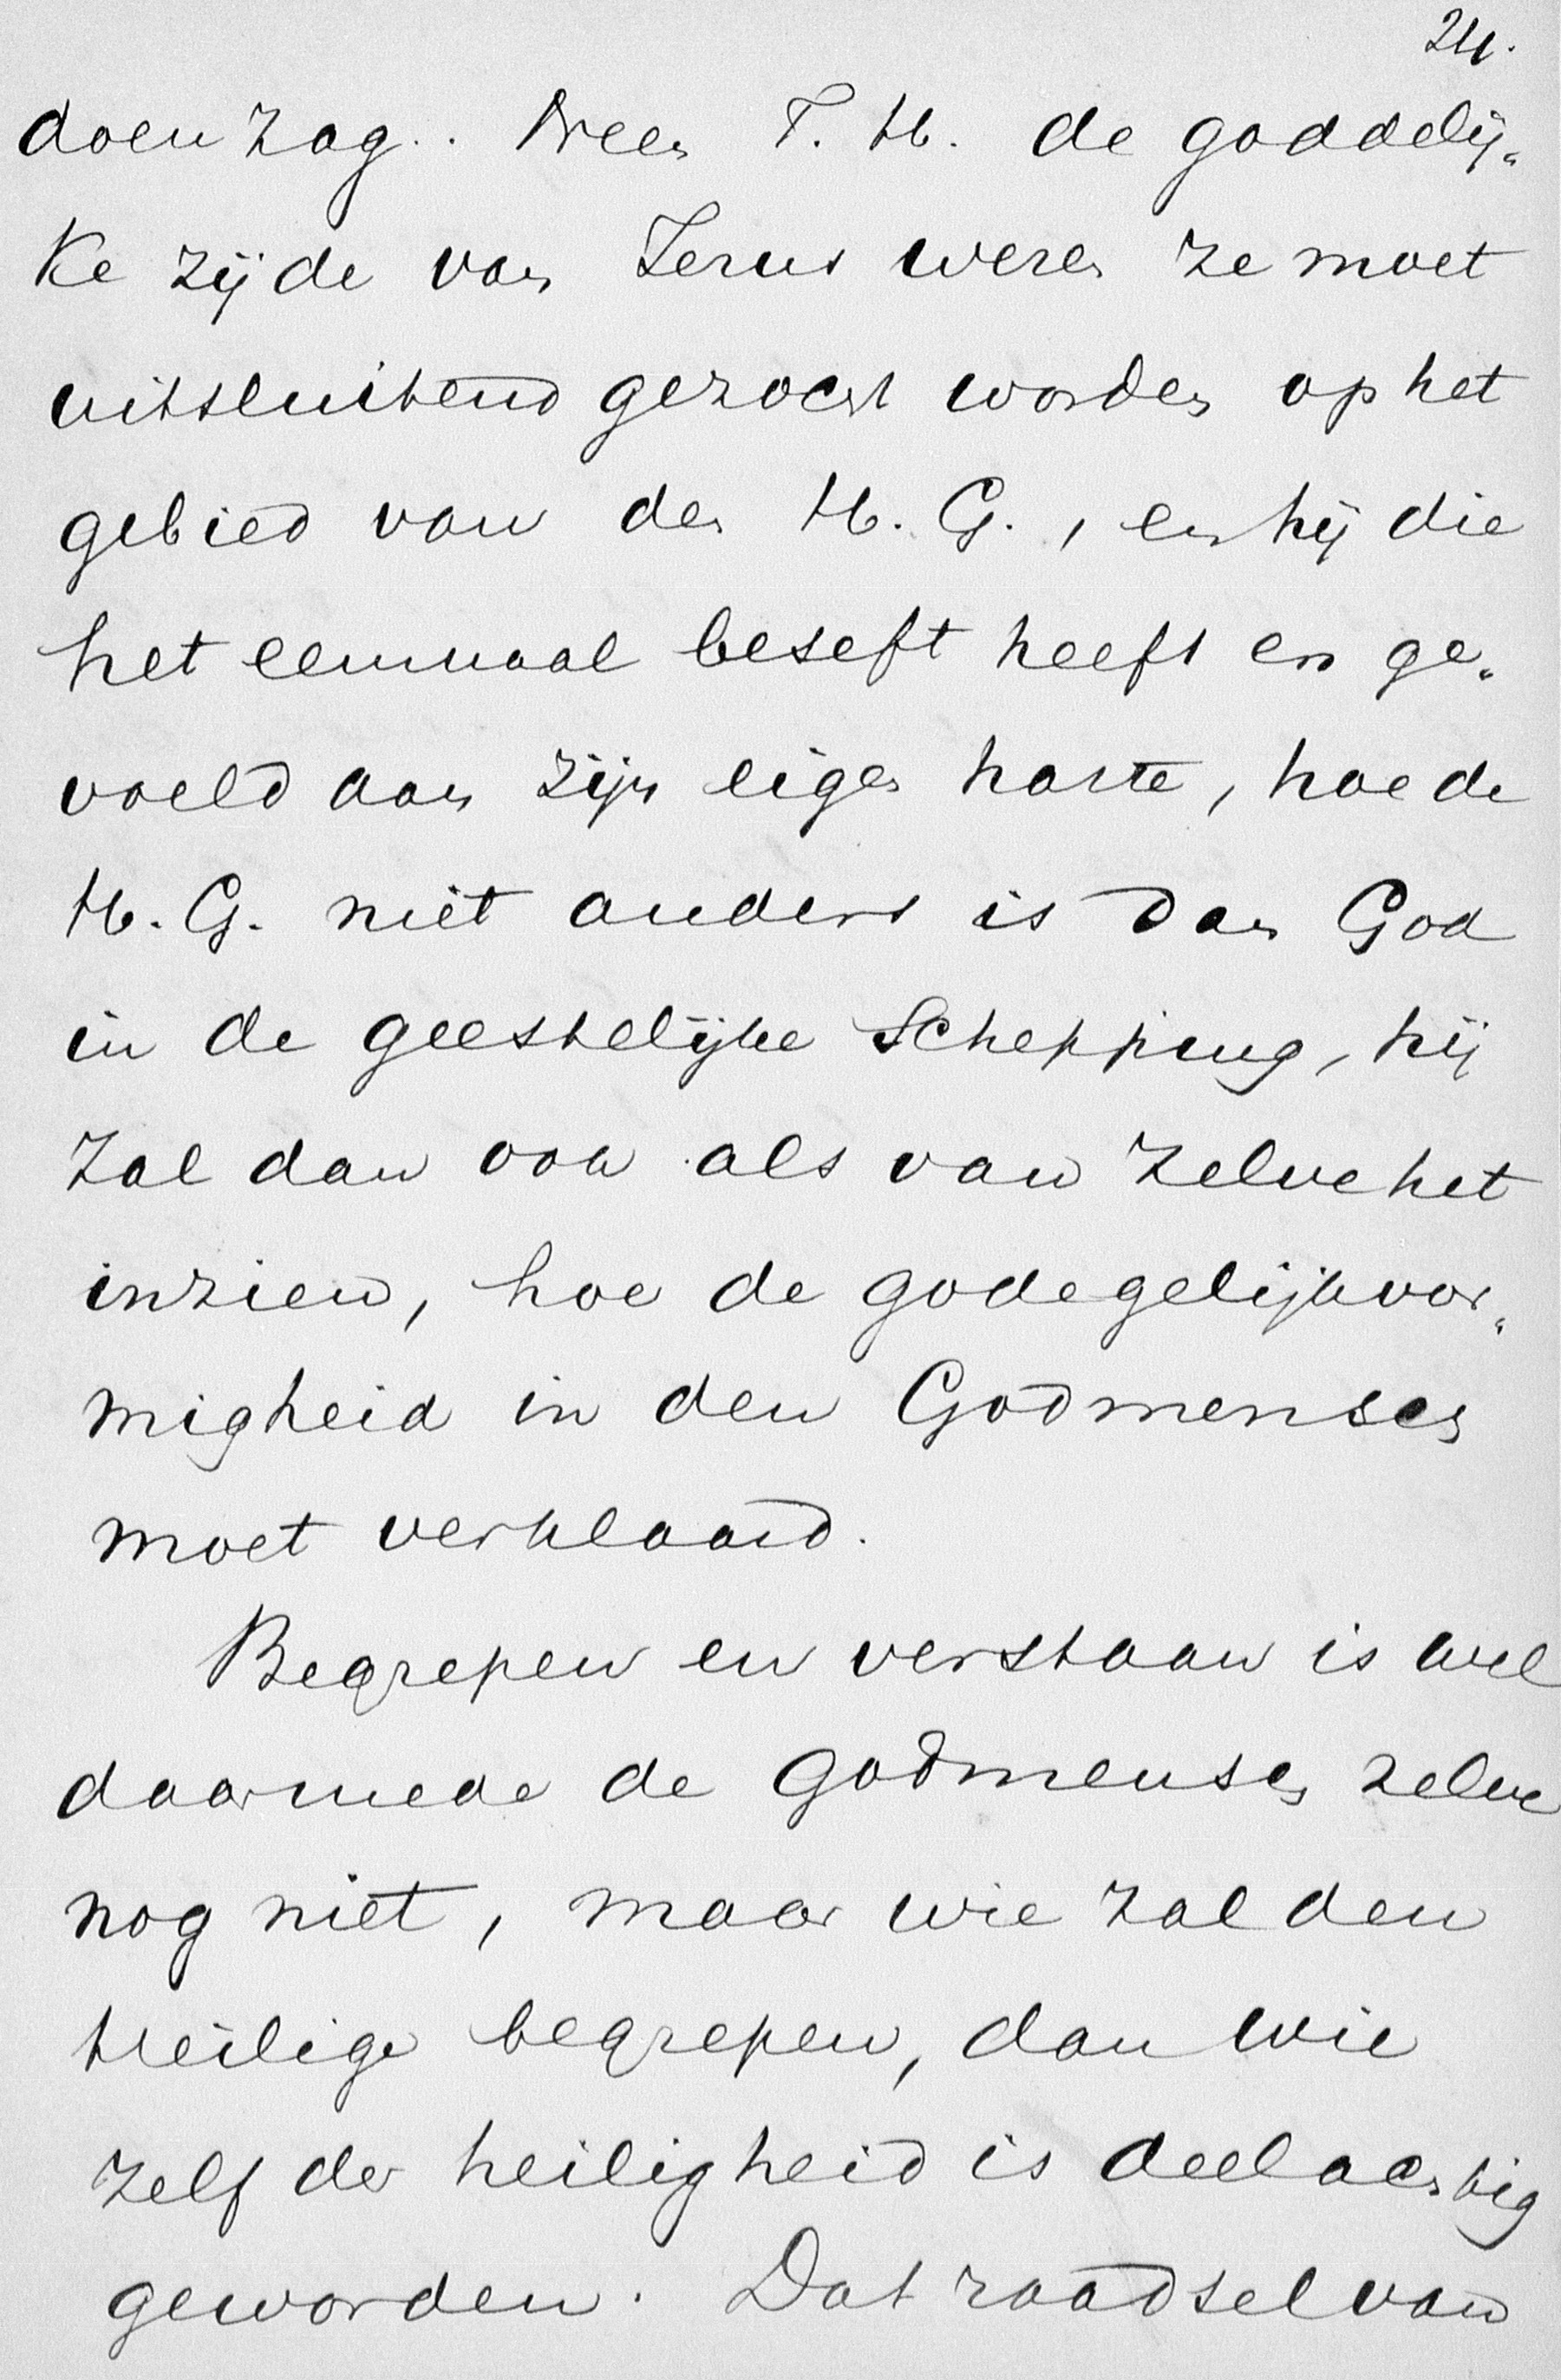 24.
doen zag.. Neen T. H. de goddelij„
ke zijde van Jezus wezen ze moet
uitsluitend gezocht worden op het
gebied van den H. G., en hij die
het eenmaal beseft heeft en ge„
voeld aan zijn eigen harte, hoe de
H. G. niet anders is dan God
in de geestelijke Schepping, hij
zal dan ook als van zelve het
inzien, hoe de godegelijkvor„
migheid in den Godmensch
moet verklaard.
Begrepen en verstaan is wel
daarmede de Godmensch zelve
nog niet, maar wie zal den
Heilige begrepen, dan wie
zelf der heiligheid is deelachtig
geworden. Dat raadsel van